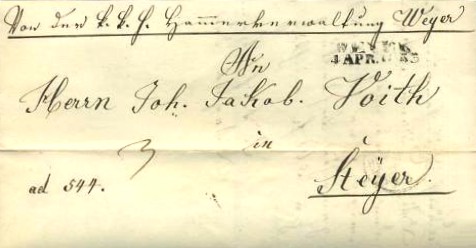 Von der k. k. H. Hammerverwaltung Weyer
WEYER
4 APR.
An
Herrn Joh. Jakob. Voith
3
in
ad 544.
Steÿer.